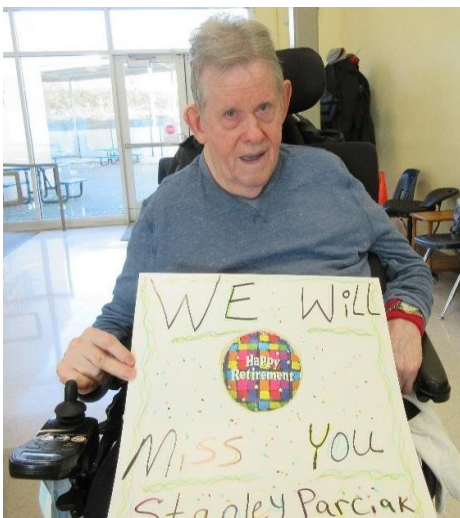 WE WiLL
Happy
Retirement
Miss You
Stanley Parciak